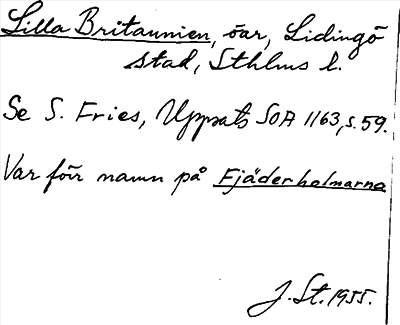 Lilla Britannien, öar, Lidingö
stad, Sthlms l.
Se S. Fries, Uppsats SOA 1163, s. 59.
Var förr namn på Fjäderholmarna
J. St. 1955.